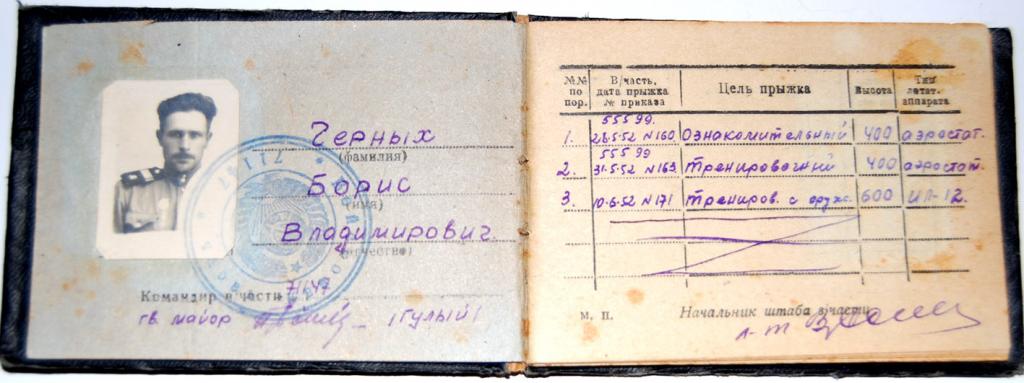 Черных
(фамилия)
Борис
(имя)
Владимирович
(отчество)
Командир в/части 71147
гв майор (Гулый)
№№ по пор.
В/часть, дата прыжка № приказа
Цель прыжка
Высота
Тип летат. аппарата
55599.
1. 28-5-52 N160 Ознакомительный 400 аэростат.
55599
2. 31-5-52 N163 Тренировочний 400 аэростат.
3. 10-6-52 N171 Трениров. с оруж. 600 ИЛ-12.
м. п. Начальник штаба в/части
л-т